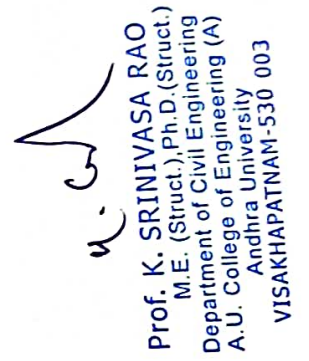 Prof. K. SRINIVASA RAO
M.E. (Struct.), Ph.D.(Struct.)
Department of Civil Engineering
A.U. College of Engineering (A)
Andhra University
VISAKHAPATNAM-530 003